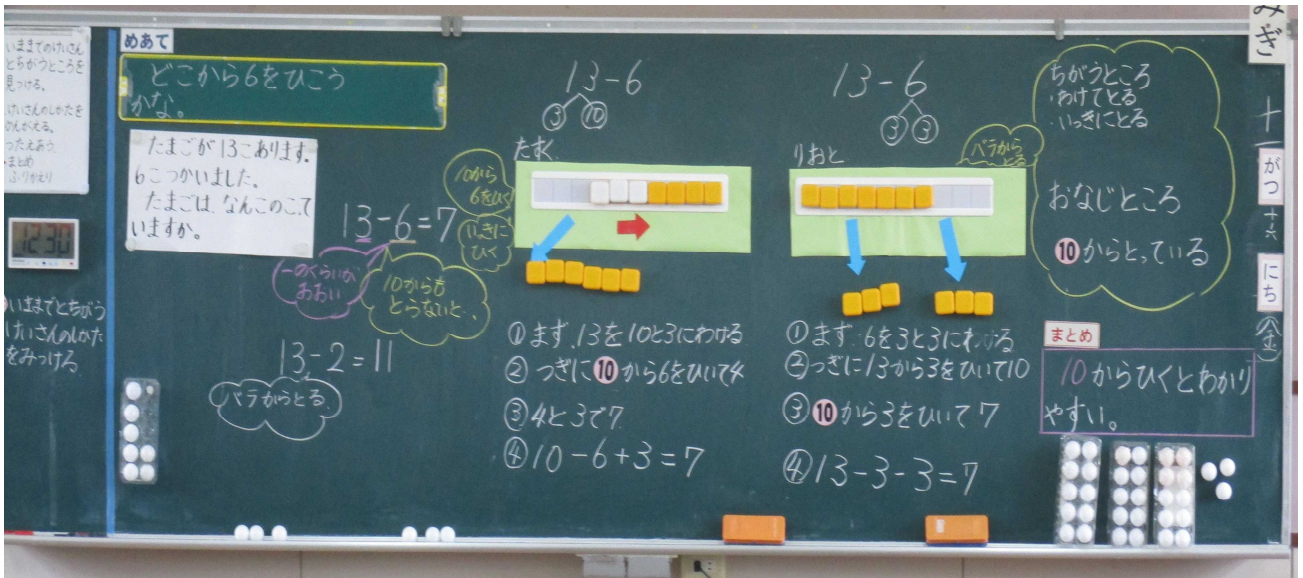 いままでのけいさん
とちがうところを
見つける。
けいさんのしかたを
かんがえる。
つたえあう
まとめ
ふりかえり
12:30
いままでとちがう
けいさんのしかた
をみつける
めあて
どこから6をひこう
かな。
たまごが13こあります。
6こつかいました。
たまごは、なんこのこって
いますか。
13-6=7
一のくらいが
おおい
10からも
とらないと、、
13-2=11
バラからとる。
13-6
③ ⑩
たすく
10から
6をひく
いっきに
ひく
① まず、13を10と3にわける
② つぎに⑩から6をひいて4
③ 4と3で7
④ 10-6+3=7
13-6
③ ③
りおと
バラから
とる
① まず 6を3と3にわける
② つぎに13から3をひいて10
③ ⑩から3をひいて7
④ 13-3-3=7
ちがうところ
・わけてとる
・いっきにとる
おなじところ
⑩からとっている
まとめ
10からひくとわかり
やすい。
みぎ
十一
がつ
十六
にち
(金)